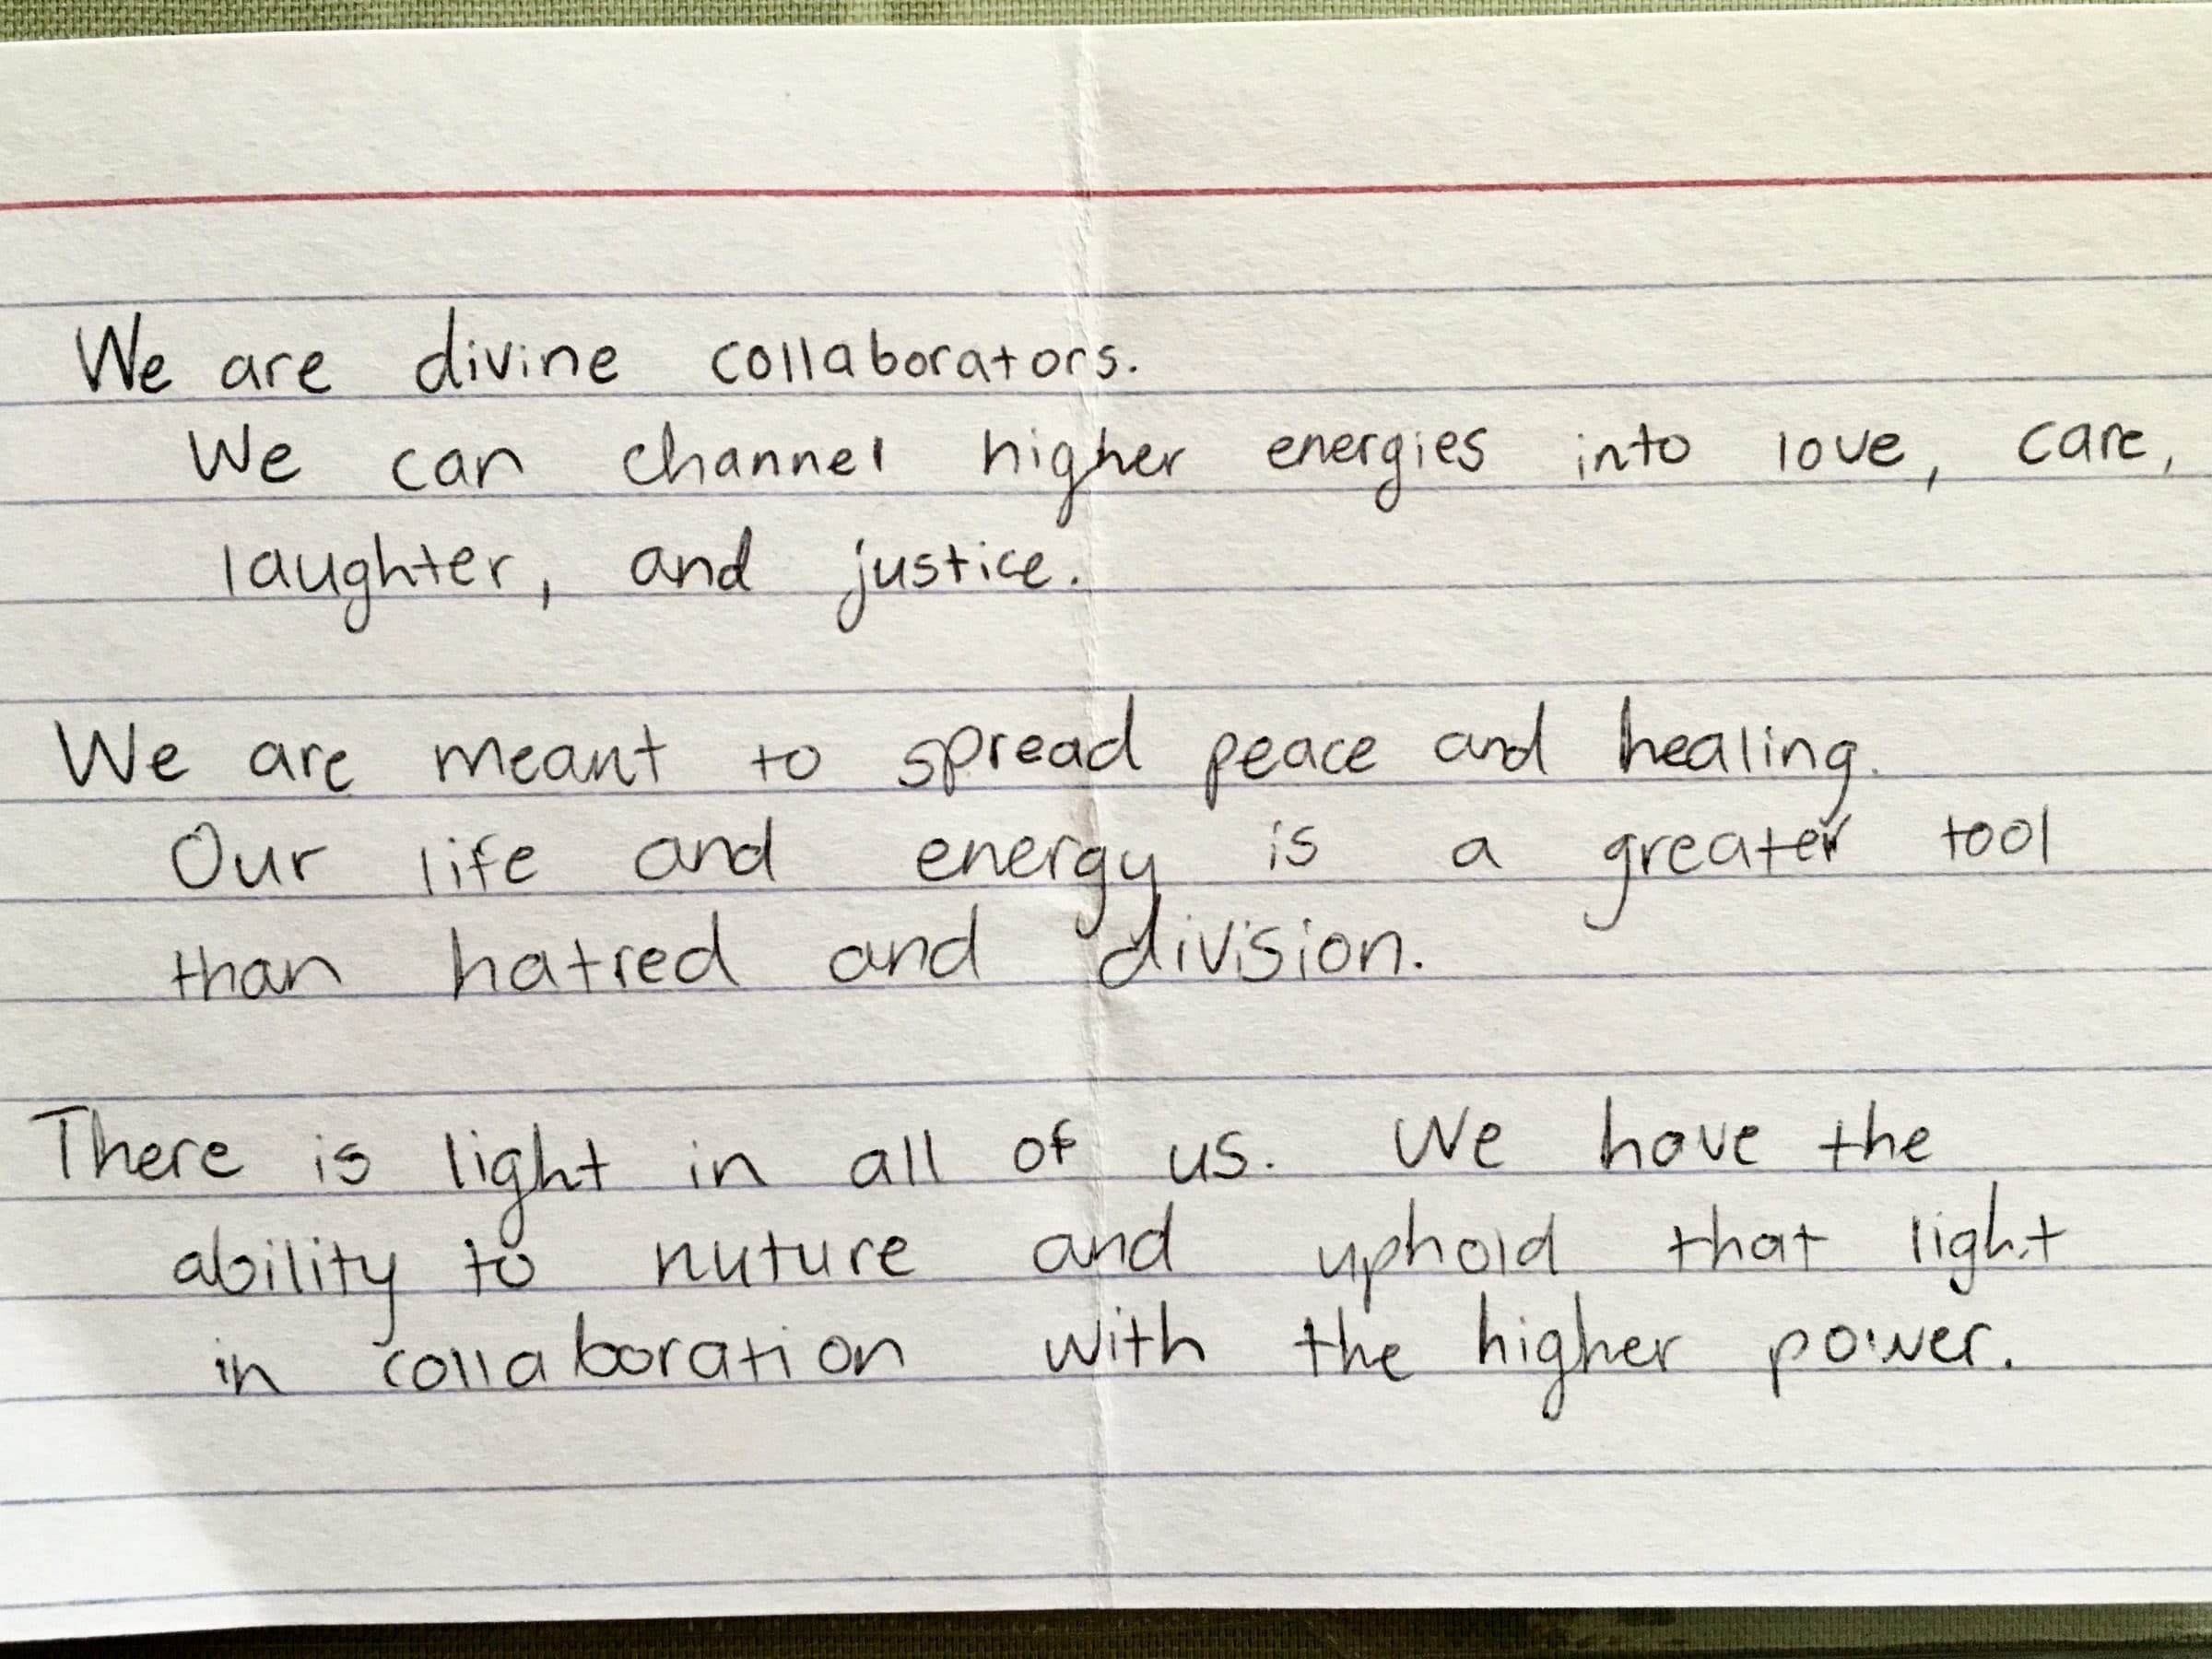 We are divine collaborators.
We can channel higher energies into love, care,
laughter, and justice.
We are meant to spread peace and healing.
Our life and energy is a greater tool
than hatred and division.
There is light in all of us. We have the
ability to nuture and uphold that light
in collaboration with the higher power.